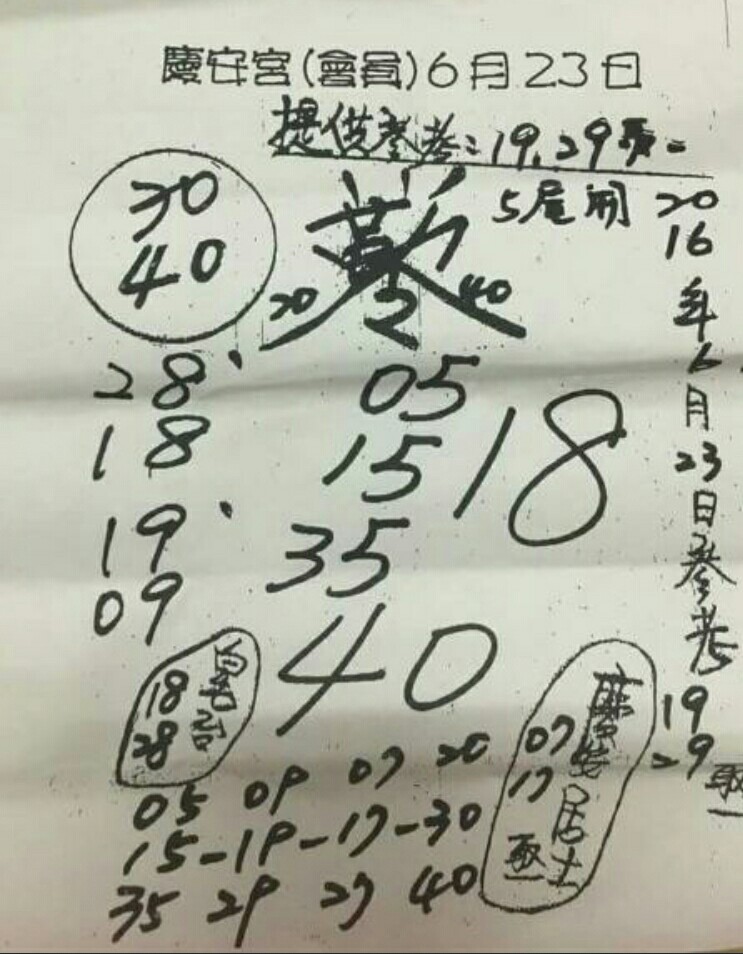 慶安宮(會員)6月23日
提供參考:19.29取一
5尾開
30
40
20 2 40
28
18
19
09
05
15
35
40
18
2016年6月23日參考
19
29
取一
18
28
05 09 07 20
15-19-17-30
35 29 27 40
慶安居士
07
17
取一